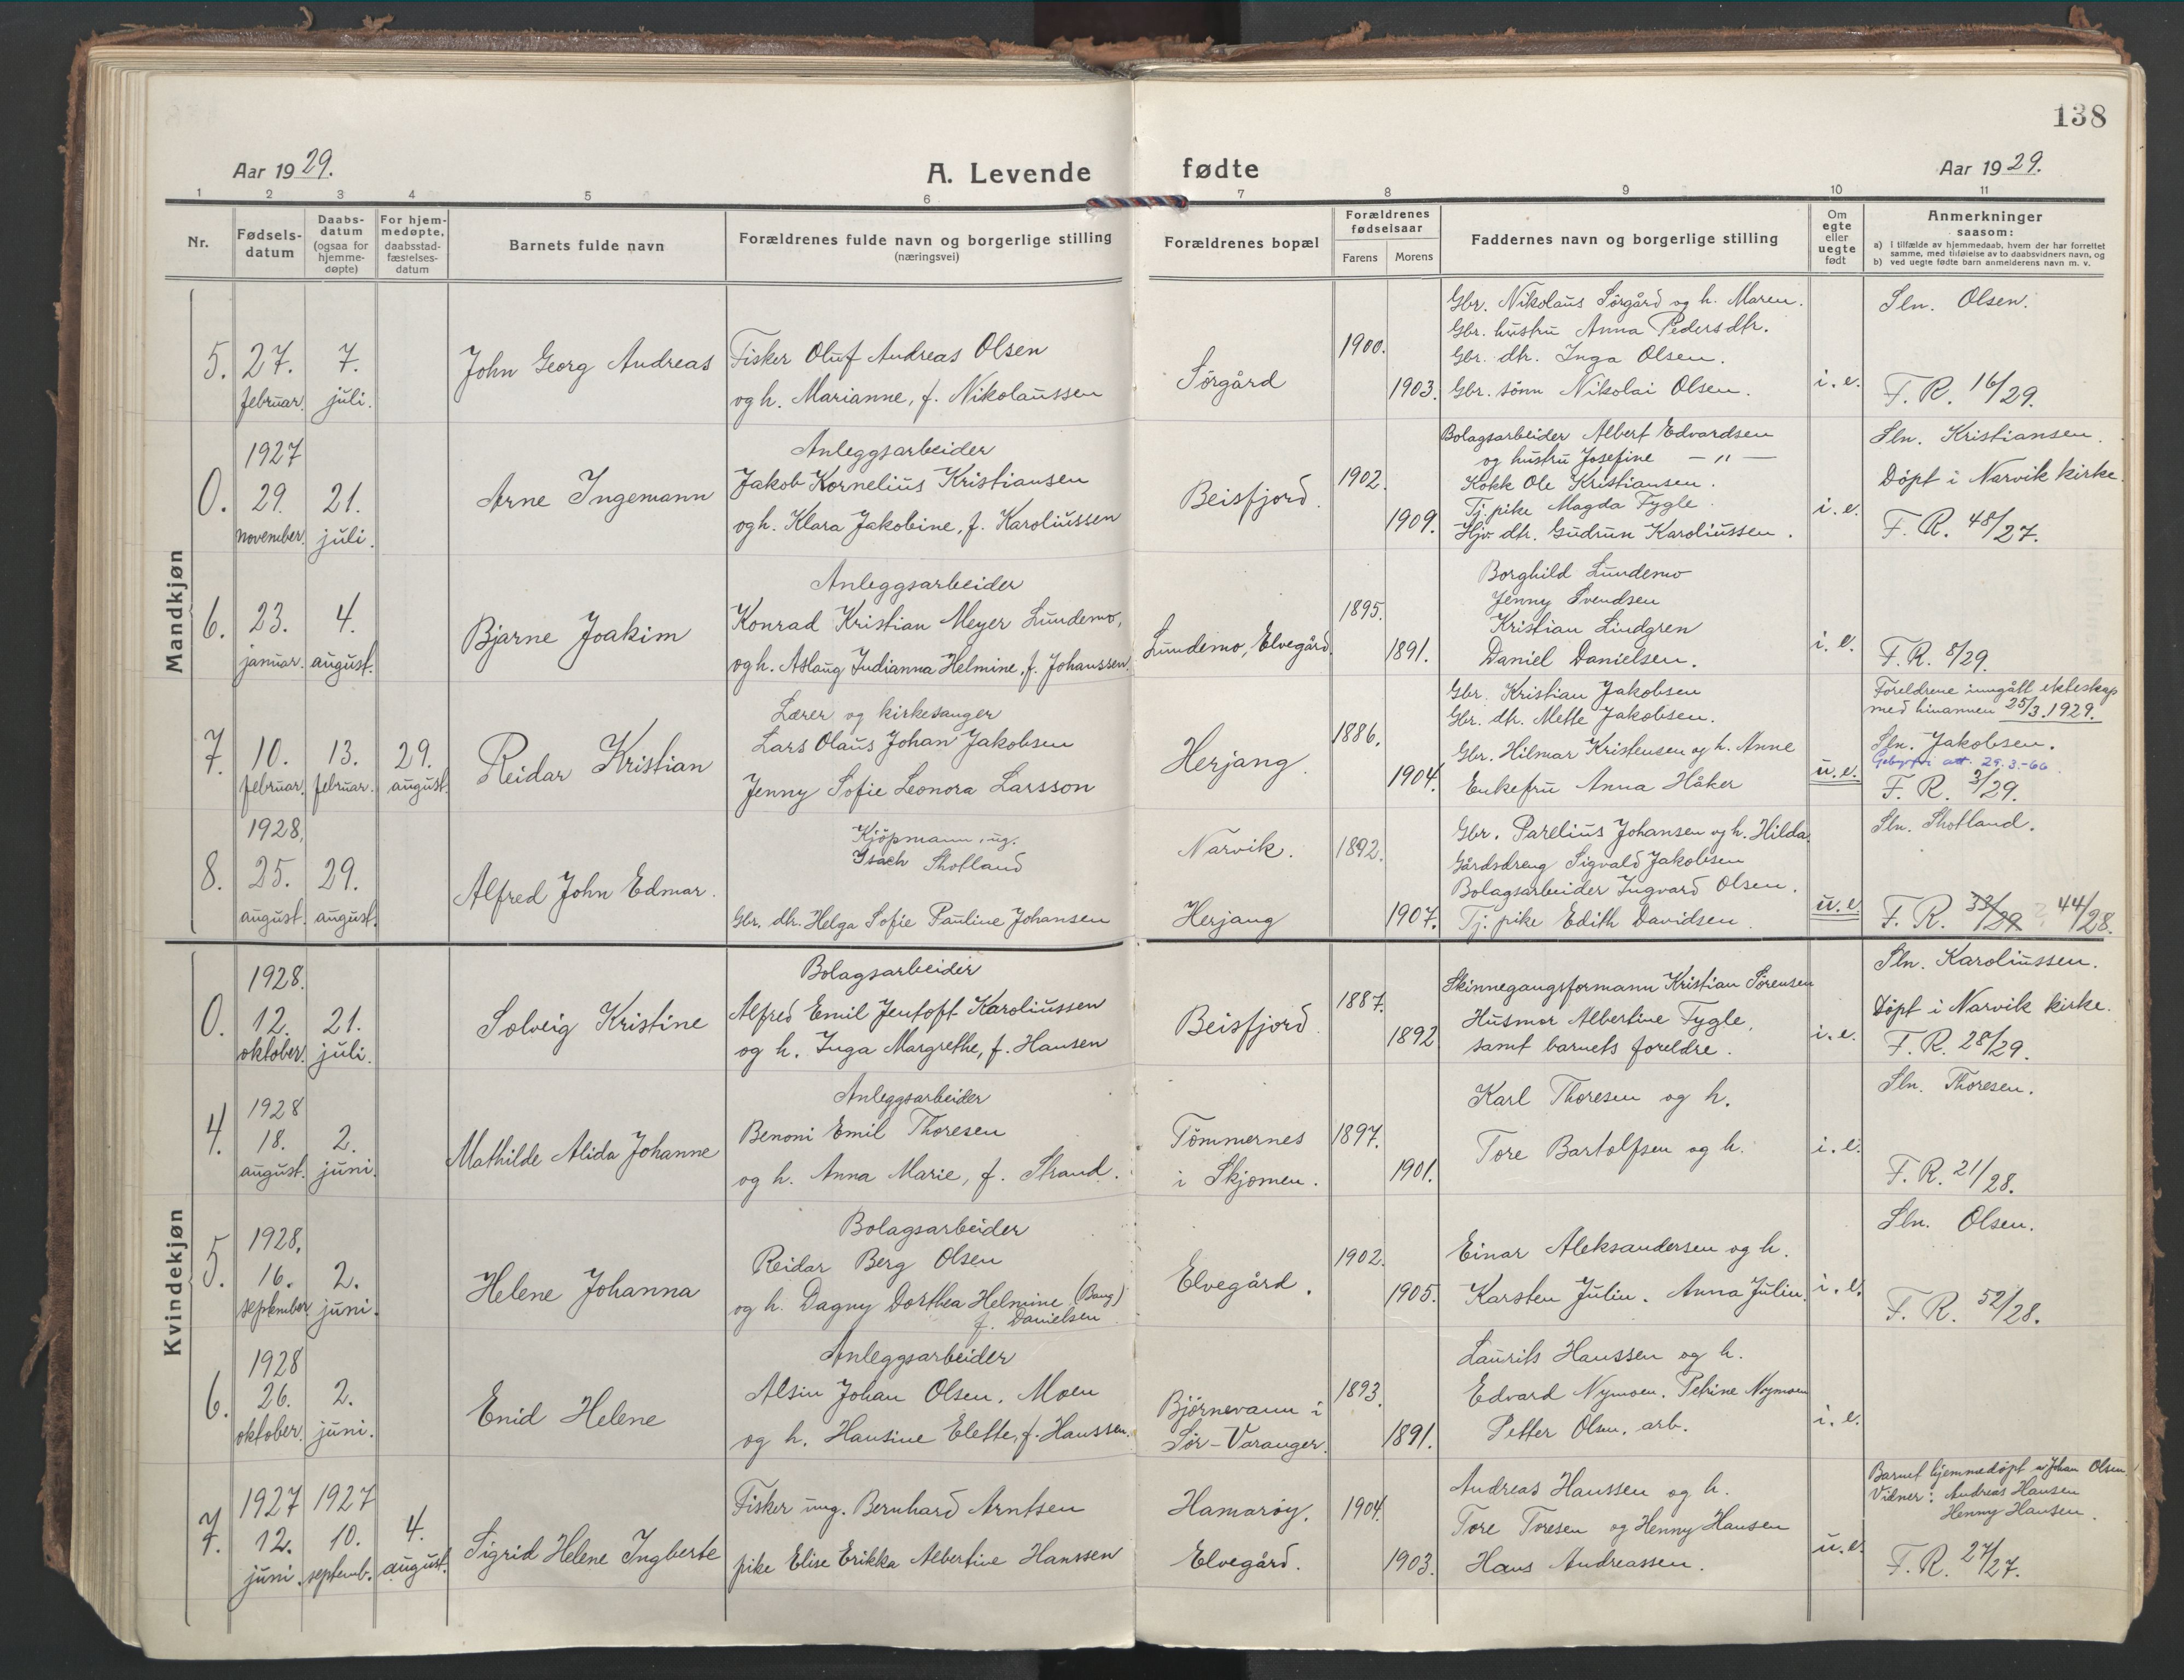 138
Aar 1929.
A. Levende fødte
Aar 1929.
1 2 3 4 5 6 7 8 9 10 11
Nr.
Fødsels-
datum
Daabs-
datum
(ogsaa for
hjemme-
døpte)
For hjem-
medøpte,
daabsstad-
fæstelses-
datum
Barnets fulde navn
Forældrenes fulde navn og borgerlige stilling
(næringsvei)
Forældrenes bopæl
Forældrenes
fødselsaar
Farens Morens
Faddernes navn og borgerlige stilling
Om
egte
eller
uegte
født
Anmerkninger
saasom:
a) i tilfælde av hjemmedaab, hvem der har forrettet
samme, med tilføielse av to daabsvidners navn, og
b) ved uegte fødte barn anmelderens navn m. v.
Mandkjøn
5. 27.
februar.
7.
juli.
John Georg Andreas
Fisker Oluf Andreas Olsen
og h. Marianne, f. Nikolaussen
Sørgård
1900.
1903.
Gbr. Nikolaus Sørgård og h. Maren.
Gbr. hustru Anna Pedersdtr.
Gbr. dtr. Inga Olsen.
Gbr. sønn Nikolai Olsen.
i. e.
Sln. Olsen.
F. R. 16/29.
0. 1927
29.
november.
21.
juli.
Arne Ingemann
Anleggsarbeider
Jakob Kornelius Kristiansen
og h. Klara Jakobine, f. Karoliussen
Beisfjord.
1902.
1909.
Bolagsarbeider Albert Edvardsen
og hustru Josefine — " —
Kokk Ole Kristiansen.
Tj. pike Magda Fygle.
Hjv. dtr. Gudrun Karoliussen.
i. e.
Sln. Kristiansen.
Døpt i Narvik kirke.
F. R. 48/27.
6. 23.
januar.
4.
august.
Bjarne Joakim
Anleggsarbeider
Konrad Kristian Meyer Lundemo,
og h. Aslaug Indianna Helmine, f. Johanssen.
Lundemo, Elvegård.
1895.
1891.
Borghild Lundemo
Jenny Svendsen
Kristian Lindgren
Daniel Danielsen.
i. e.
F. R. 8/29.
7. 10.
februar.
13.
februar.
29.
august.
Reidar Kristian
Lærer og kirkesanger
Lars Olaus Johan Jakobsen
Jenny Sofie Leonora Larsson
Herjang.
1886.
1904.
Gbr. Kristian Jakobsen
Gbr. dtr. Mette Jakobsen.
Gbr. Hilmar Kristensen og h. Anne
Enkefru Anna Håker
u. e.
Foreldrene inngått ekteskap
med hinannen 25/3.1929.
Sln. Jakobsen.
att. 29.3.-66
F. R. 3/29.
8. 1928,
25.
august.
29.
august.
Alfred John Edmar.
Kjøpmann, ug.
Isach Shotland
Gbr. dtr. Helga Sofie Pauline Johansen
Narvik.
Herjang
1892.
1907.
Gbr. Parelius Johansen og h. Hilda.
Gårdsdreng Sigvald Jakobsen
Bolagsarbeider Ingvard Olsen.
Tj. pike Edith Davidsen.
u. e.
Sln. Shotland.
F. R. 33/29 ? 44/28.
Kvindekjøn
0. 1928.
12.
oktober.
21.
juli.
Solveig Kristine
Bolagsarbeider
Alfred Emil Jentoft Karoliussen
og h. Inga Margrethe, f. Hansen
Beisfjord.
1887.
1892
Skinnegangsformann Kristian Sørensen
Husmor Albertine Fygle,
samt barnets foreldre.
i. e.
Sln. Karoliussen.
Døpt i Narvik kirke.
F. R. 28/29.
4. 1928
18.
august.
2.
juni.
Mathilde Alida Johanne
Anleggsarbeider
Benoni Emil Thoresen
og h. Anna Marie, f. Strand.
Tømmernes
i Skjomen.
1897.
1901.
Karl Thoresen og h.
Tore Bartolfsen og h.
i. e.
Sln. Thoresen.
F. R. 21/28.
5. 1928,
16.
september
2.
juni.
Helene Johanna
Bolagsarbeider
Reidar Berg Olsen
og h. Dagny Dorthea Helmine (Bang)
f. Danielsen
Elvegård.
1902.
1905.
Einar Aleksandersen og h.
Karsten Juliu. Anna Juliu.
i. e.
Sln. Olsen.
F. R. 52/28.
6. 1928
26.
oktober.
2.
juni.
Enid Helene
Anleggsarbeider
Alsin Johan Olsen. Moen
og h. Hansine Elette, f. Hanssen.
Bjørnevann i
Sør-Varanger.
1893.
1891.
Laurits Hanssen og h.
Edvard Nymoen. Petrine Nymoen
Petter Olsen, arb.
i. e.
7. 1927
12.
juni.
1927
10.
septemb.
4.
august.
Sigrid Helene Ingberte
Fisker ung. Bernhard Arntsen
pike Elise Erikka Albertine Hanssen
Hamarøy.
Elvegård.
1904.
1903.
Andreas Hanssen og h.
Tore Toresen og Henny Hansen
Hans Andreassen.
u. e.
Barnet hjemmedøpt av Johan Olsen
Vidner: Andreas Hansen
Henny Hansen.
F. R. 27/27.